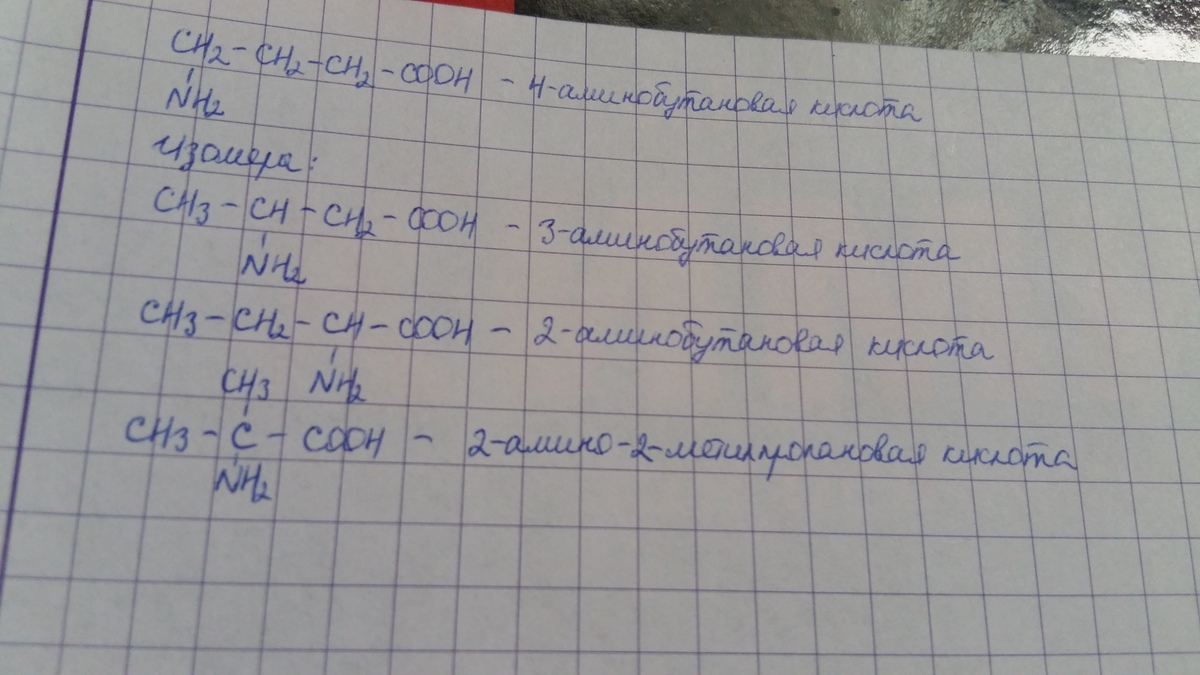 CH2-CH2-CH2-COOH - 4-аминобутановая кислота
NH2
Изомера:
CH3-CH-CH2-COOH - 3-аминобутановая кислота
NH2
CH3-CH2-CH-COOH - 2-аминобутановая кислота
CH3 NH2
CH3-C-COOH - 2-амино-2-метилпропановая кислота
NH2